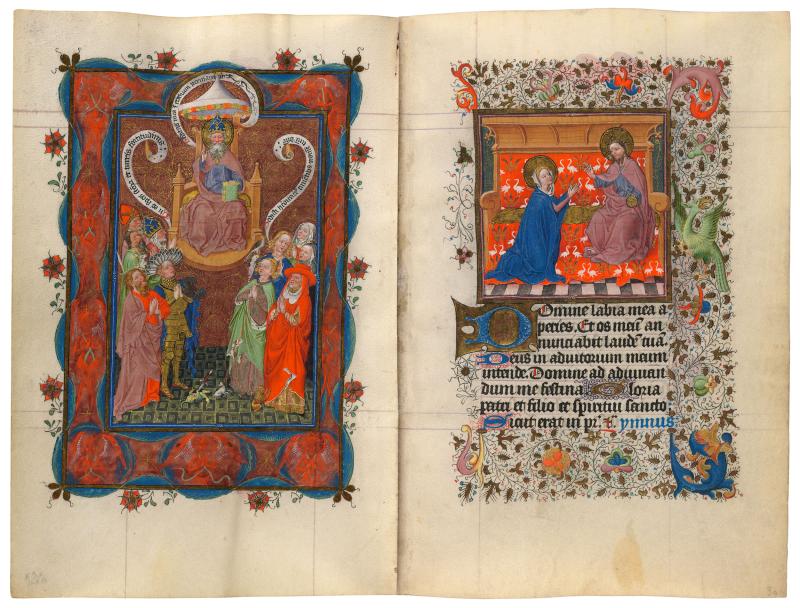 fortitudinis
Domine labia mea a
peries. Et os meū an
nunciabit laudē tuā.
Deus in adiutorium meum
intende. Domine ad adiuuan
dum me festina Gloria
patri et filio et spiritui sancto
Sicut erat in pr. ymnus